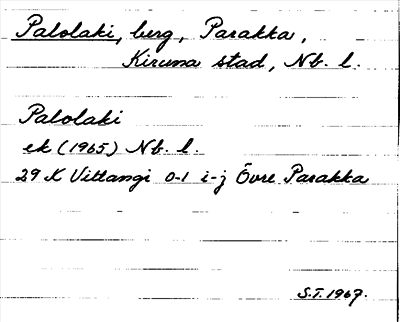 Palolaki, berg, Parakka,
Kiruna stad, Nb. l.
Palolaki
ek (1965) Nb. l.
29 K Vittangi 0-1 i-j Övre Parakka
S.T. 1967.